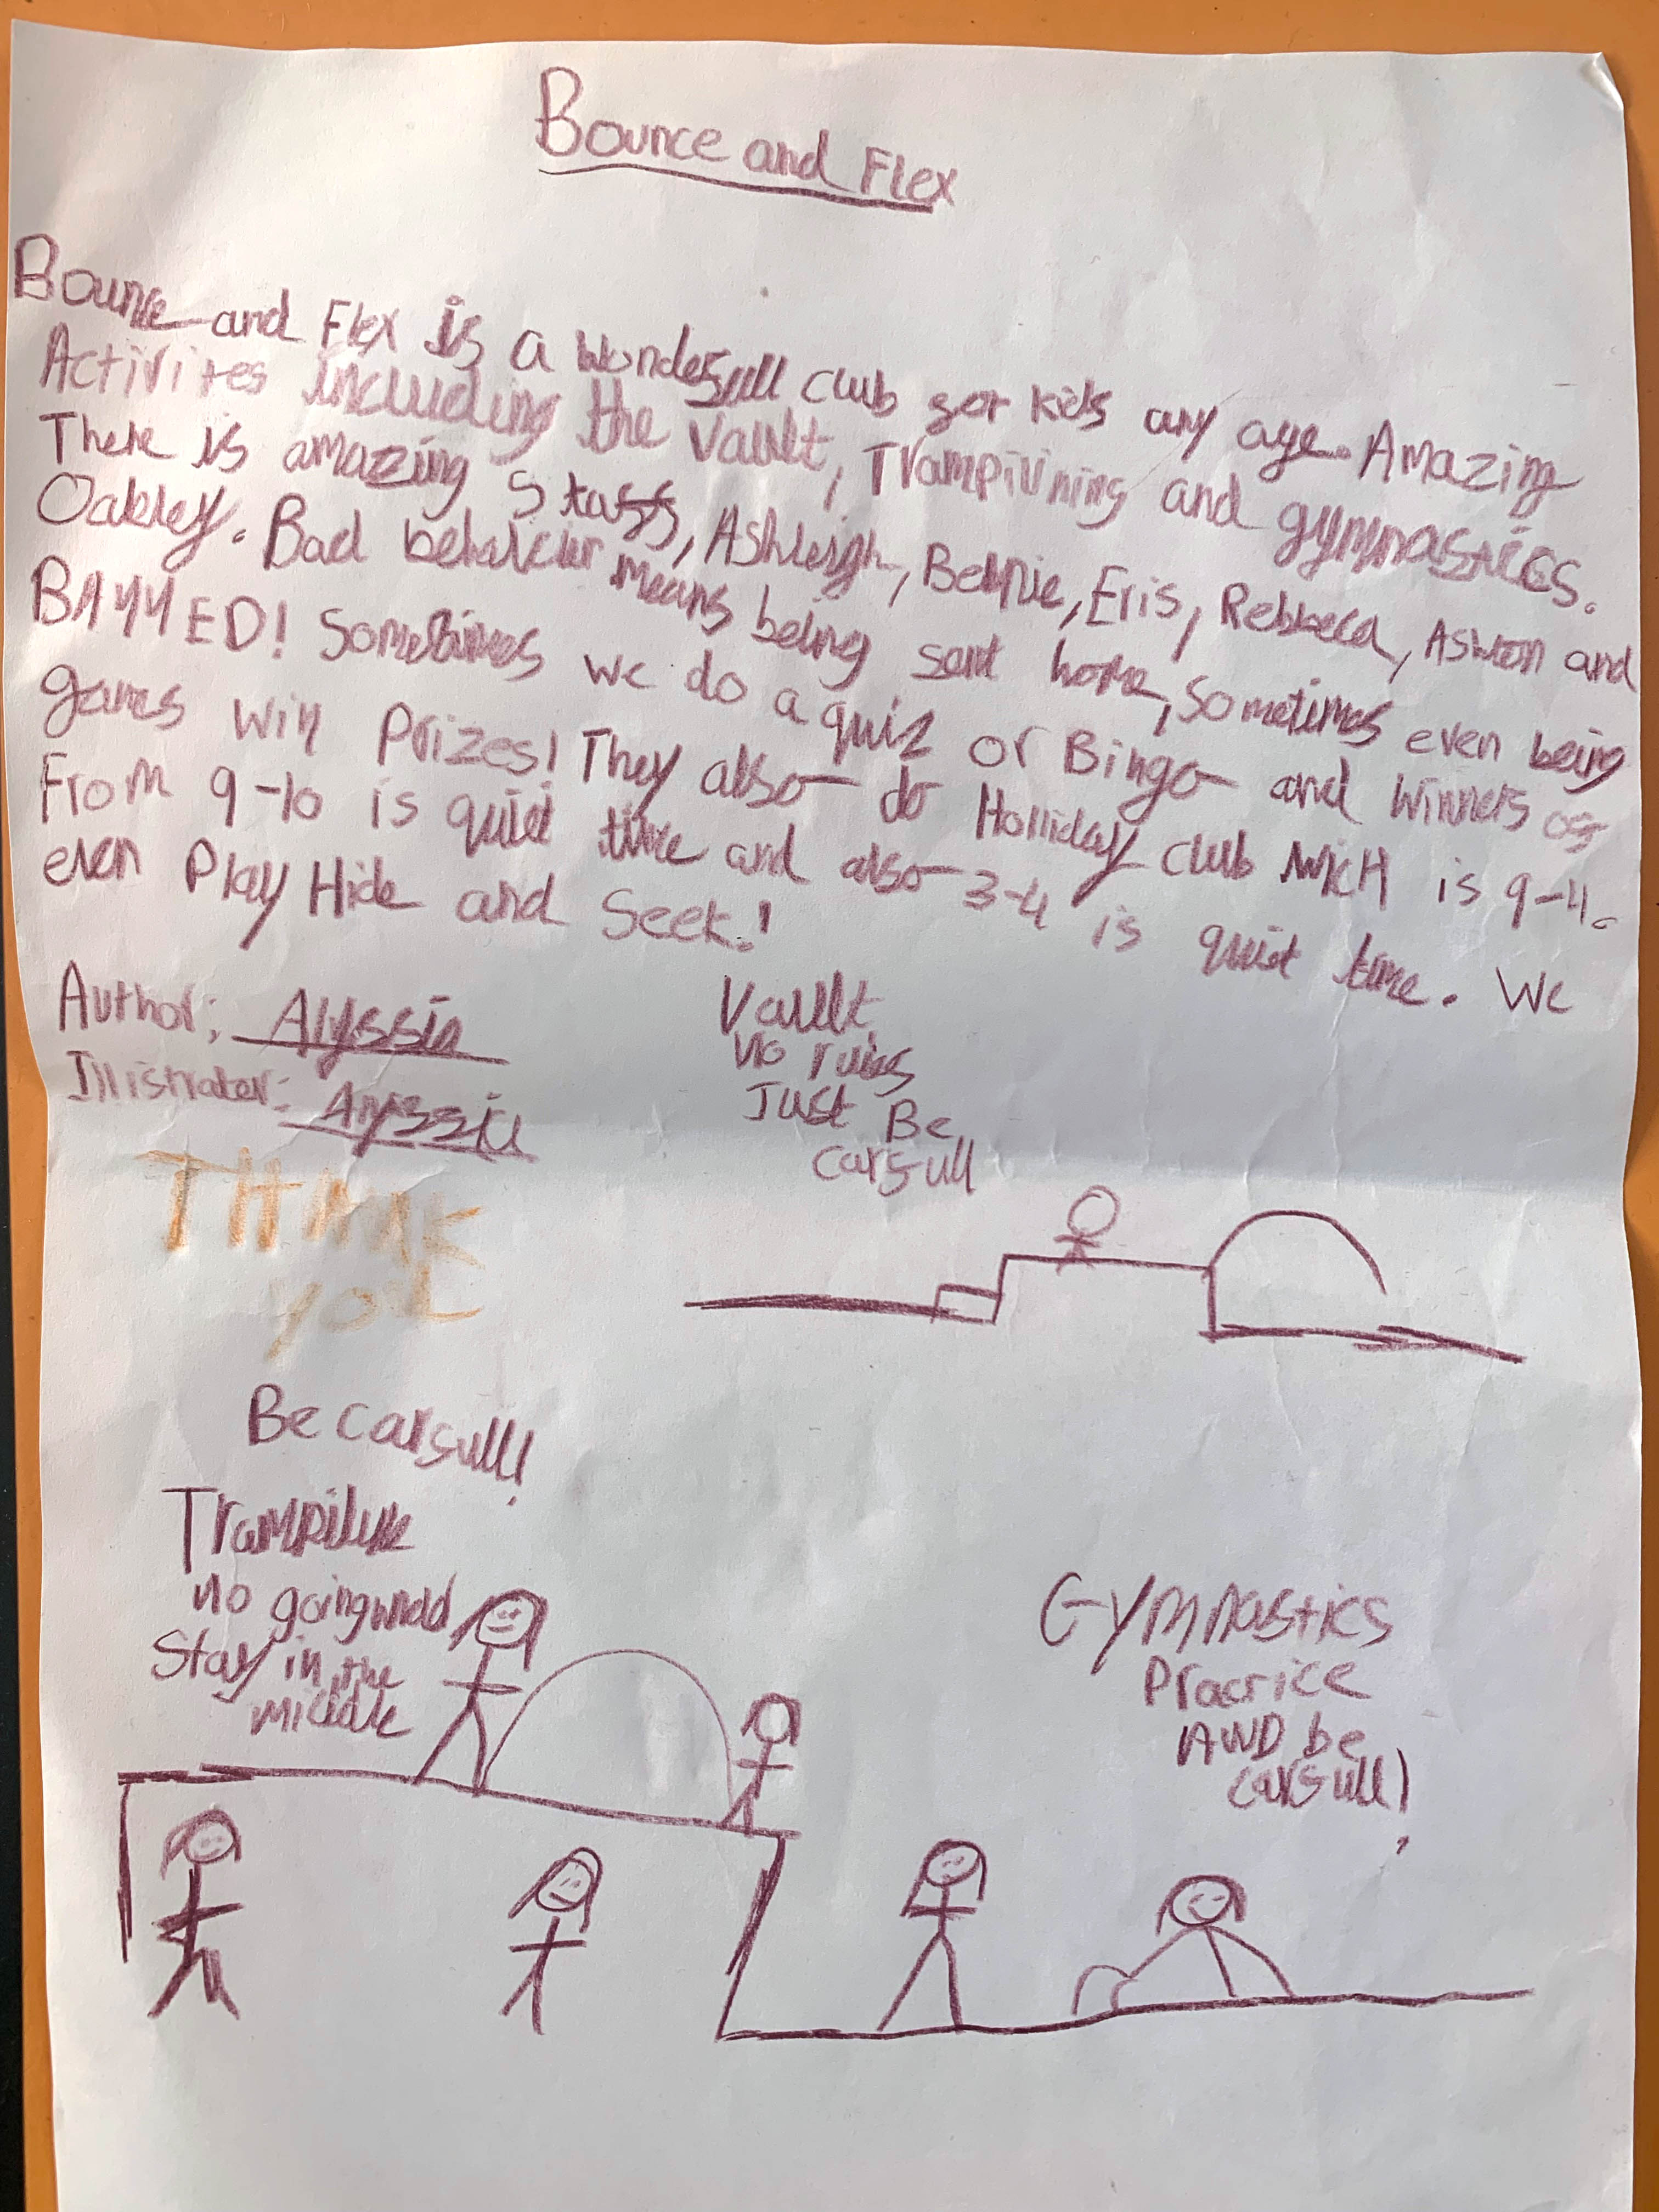 Bounce and Flex
Bounce and Flex is a wonderfull club for kids any age. Amazing
Activites including the Vault, Trampilining and gymnastics.
There is amazing staff, Ashleigh, Bennie, Eris, Rebbeca, Ashton and
Oakley. Bad behavieur means being sent home, Sometimes even being
BANNED! Sometimes we do a quiz or Bingo and winners of
games win Prizes! They also do Holliday club wicH is 9-4.
From 9-10 is quiet time and also 3-4 is quiet time. We
even Play Hide and Seek!
Author: Alyssia
Illistrater: Alyssia
THANK
YOU
Vault
no rules
Just Be
carfull
Be carfull!
Trampiline
no going mad
Stay in the
middle
Gymnastics
Practice
AND be
carfull!